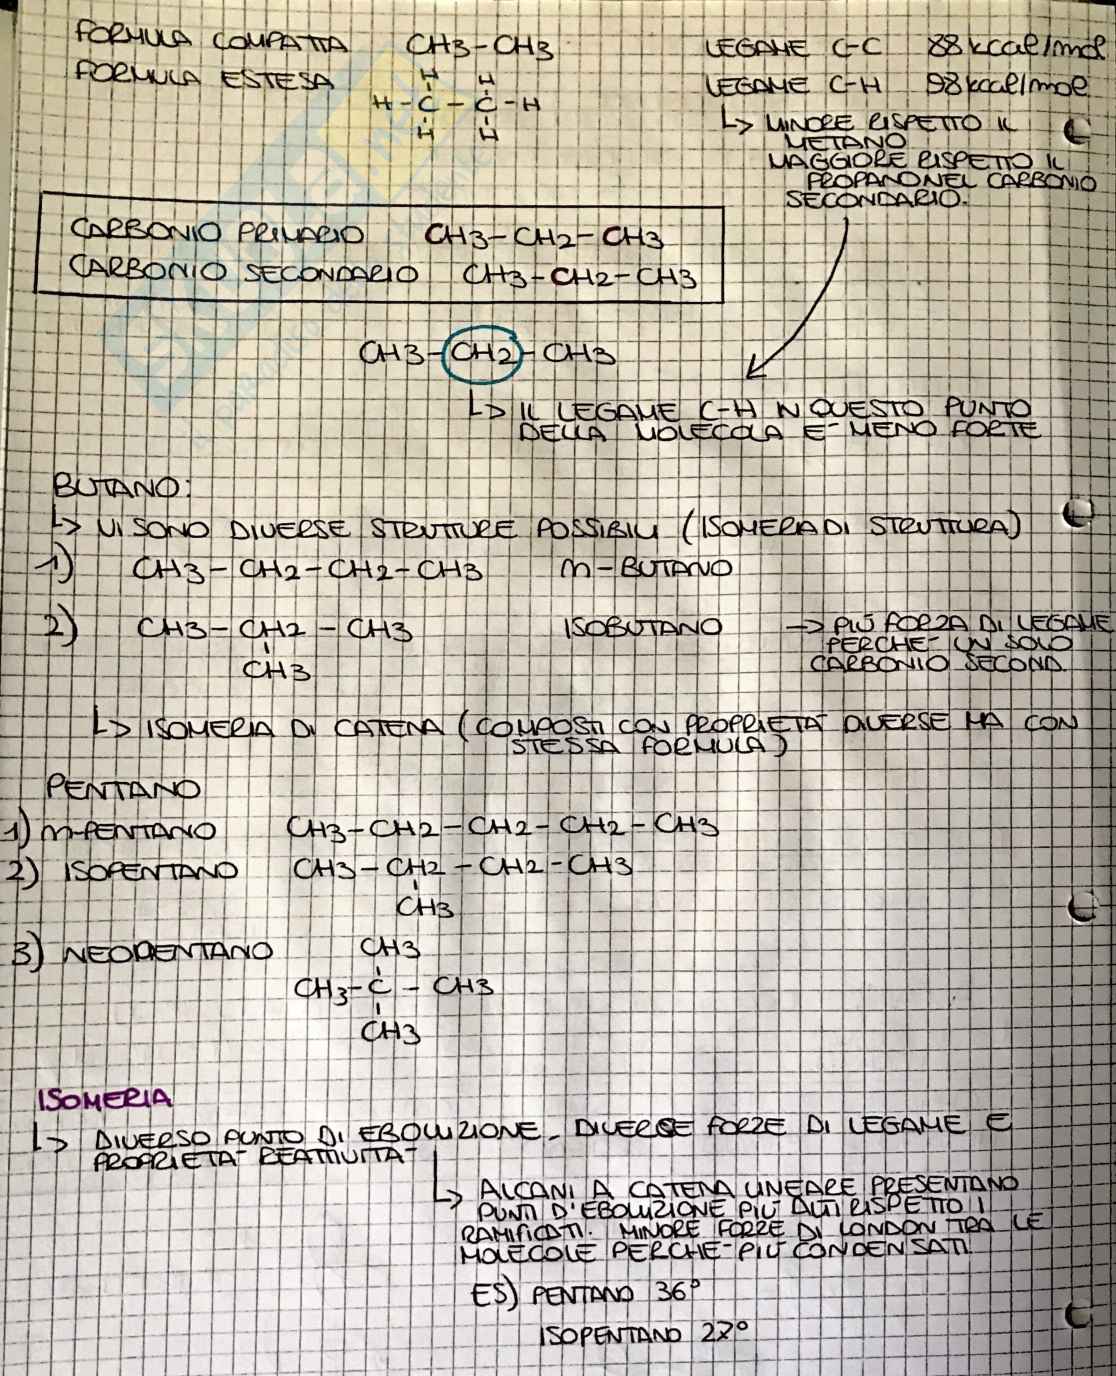 FORMULA COMPATTA CH3-CH3
FORMULA ESTESA
H H
H-C-C-H
H H
LEGAME C-C 88 kcal/mol
LEGAME C-H 98 kcal/mol
↳ MINORE RISPETTO IL
METANO
MAGGIORE RISPETTO IL
PROPANO NEL CARBONIO
SECONDARIO.
CARBONIO PRIMARIO CH3-CH2-CH3
CARBONIO SECONDARIO CH3-CH2-CH3
CH3-CH2-CH3
↳ IL LEGAME C-H IN QUESTO PUNTO
DELLA MOLECOLA E' MENO FORTE
BUTANO:
↳ VI SONO DIVERSE STRUTTURE POSSIBILI (ISOMERIA DI STRUTTURA)
1) CH3-CH2-CH2-CH3 n-BUTANO
2) CH3-CH2-CH3 ISOBUTANO → PIÙ FORZA DI LEGAME
CH3
PERCHE' UN SOLO
CARBONIO SECOND.
↳ ISOMERIA DI CATENA (COMPOSTI CON PROPRIETA' DIVERSE MA CON
STESSA FORMULA)
PENTANO
1) n-PENTANO CH3-CH2-CH2-CH2-CH3
2) ISOPENTANO CH3-CH2-CH2-CH3
CH3
3) NEOPENTANO CH3
CH3-C-CH3
CH3
ISOMERIA
↳ DIVERSO PUNTO DI EBOLLIZIONE, DIVERSE FORZE DI LEGAME E
PROPRIETA' REATTIVITA'
↳ ALCANI A CATENA LINEARE PRESENTANO
PUNTI D'EBOLLIZIONE PIU' ALTI RISPETTO I
RAMIFICATI. MINORE FORZE DI LONDON TRA LE
MOLECOLE PERCHE' PIU' CONDENSATI.
ES) PENTANO 36°
ISOPENTANO 27°